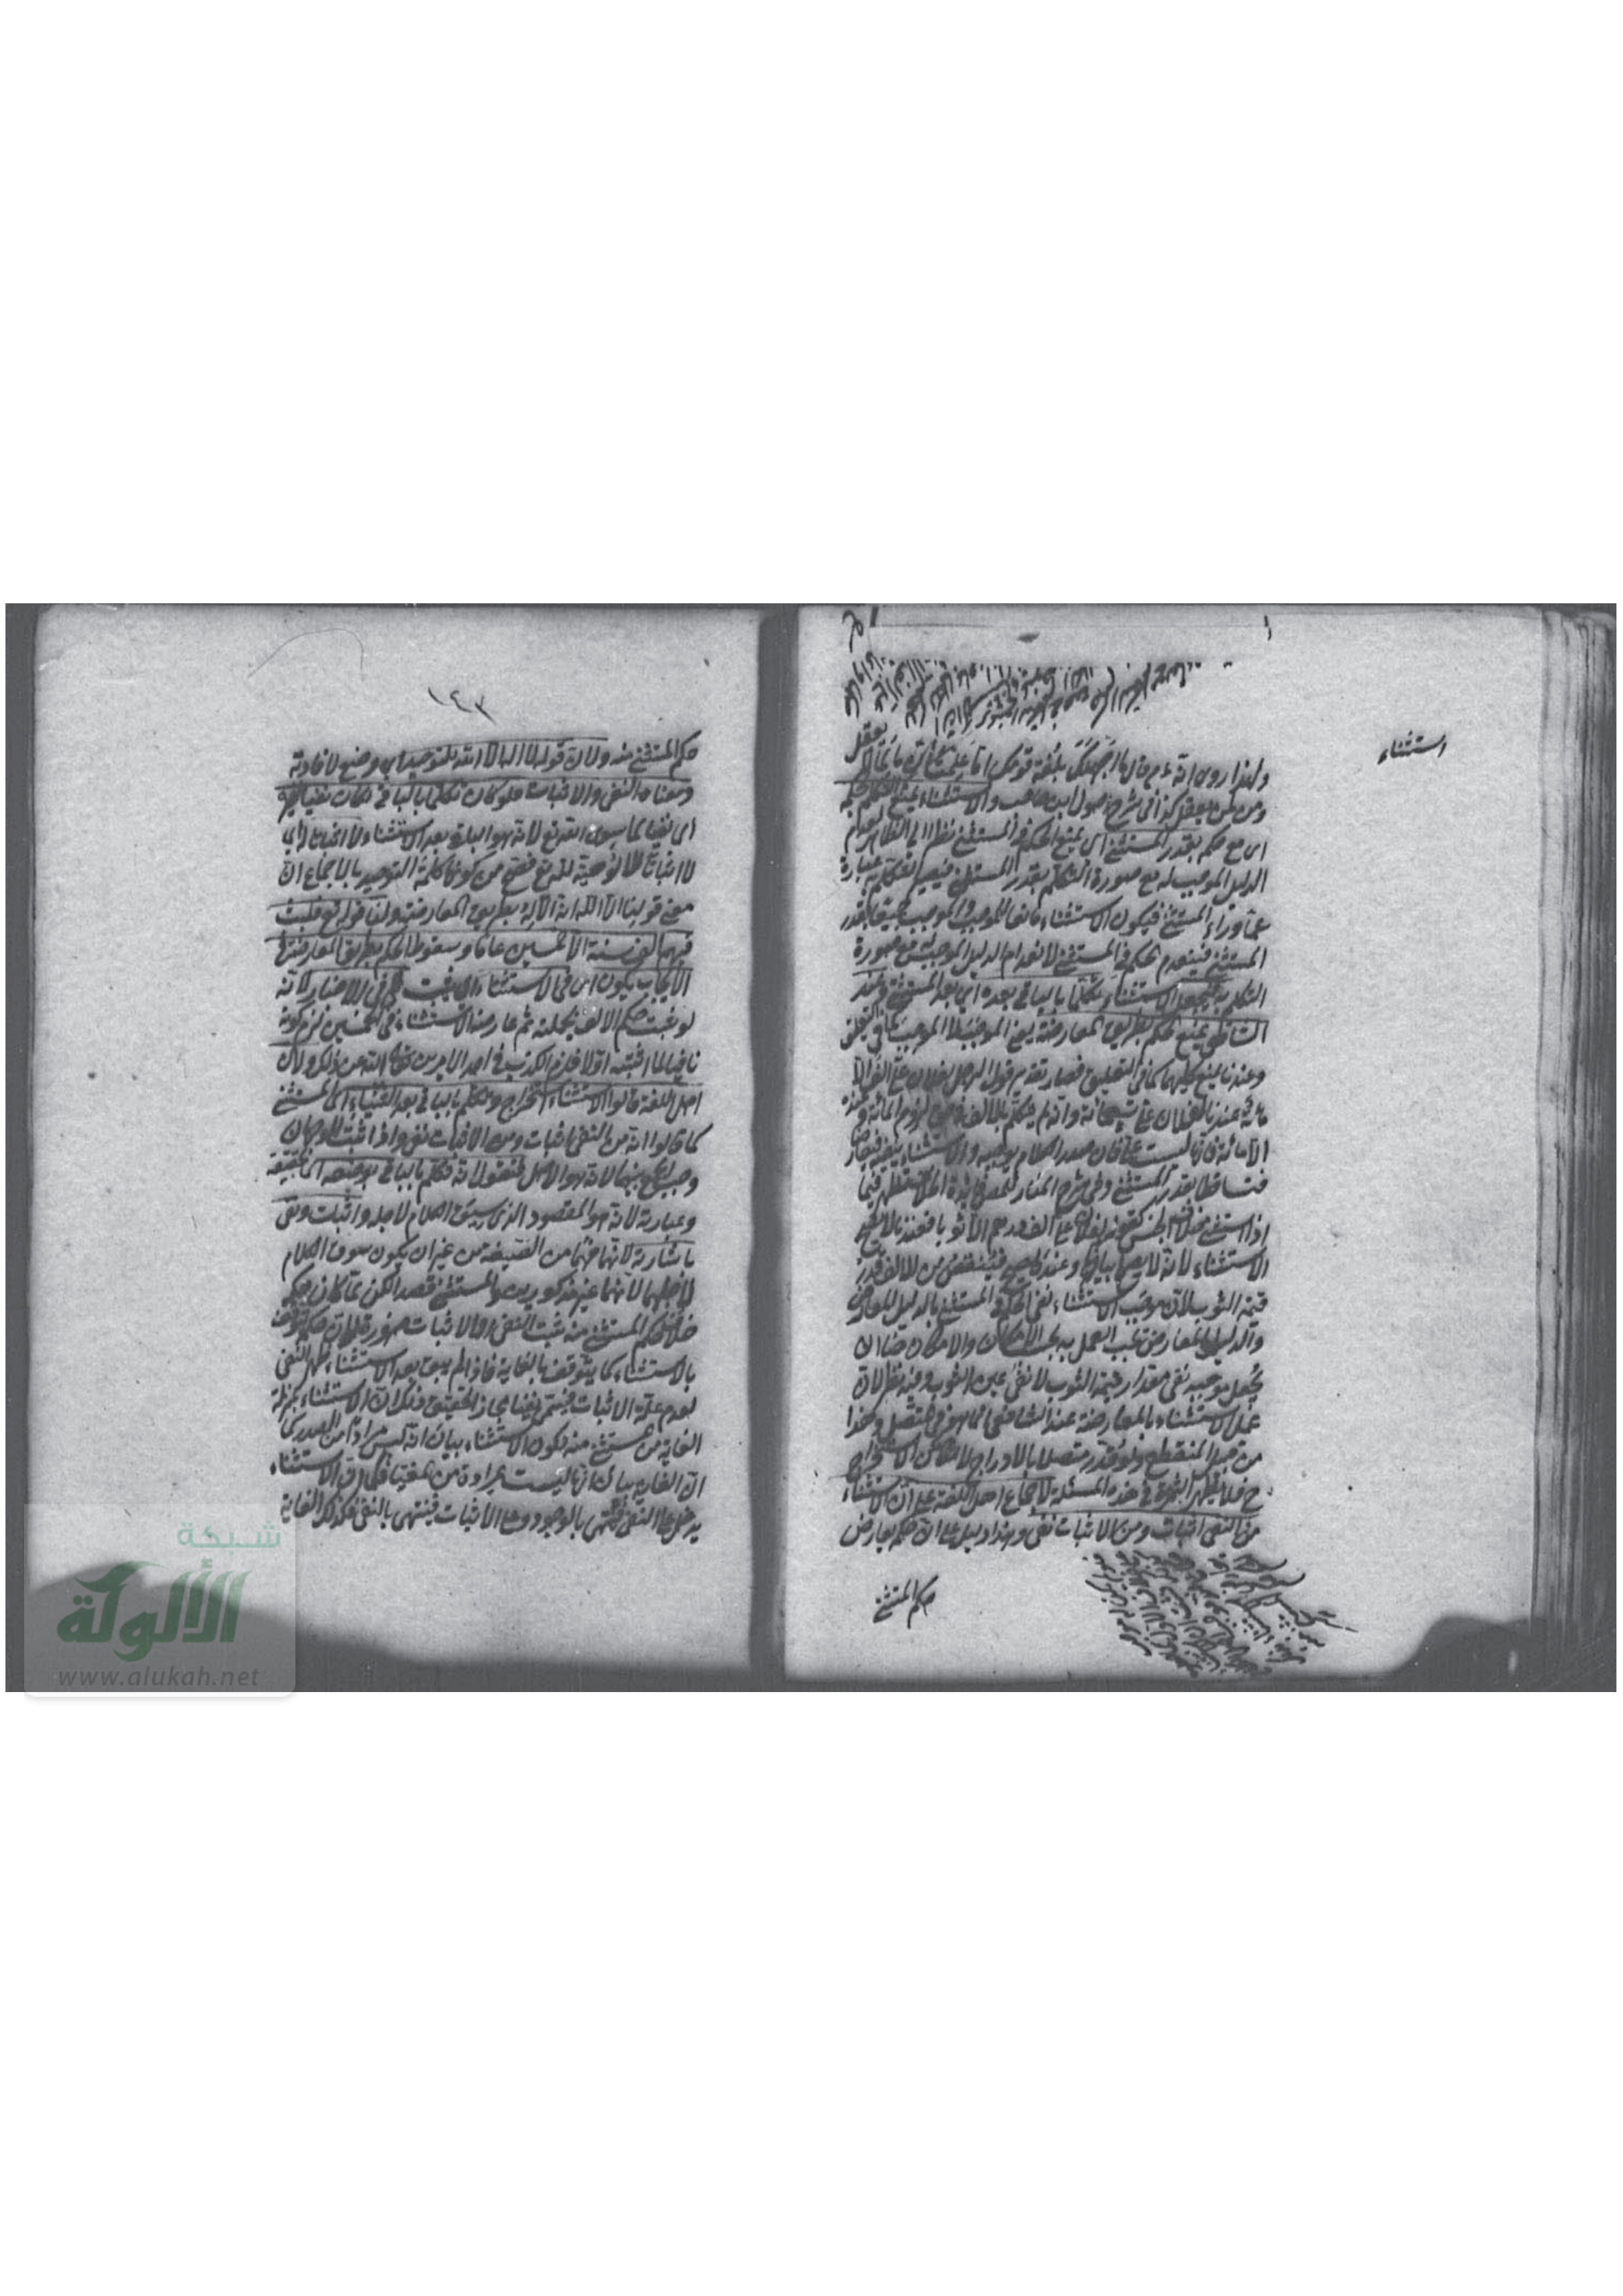 استثناء
ولهذا روى انه ءم قال ما اجهلك بلغة قومك اما علمت ان ما لما لا يعقل
ومن لمن يعقل كذا فى شرح اصول ابن حاجب والاستثناء يمنع التكلم بحكمه
اى مع حكمه بقدر المستثنى اى يمنع الحكم فى المستثنى نظرا الى الظاهر لعدم
الدليل الموجب له مع صورة التكلم بقدر المستثنى فيصير التكلم به عبارة
عما وراء المستثنى فيكون الاستثناء مانعا للموجب والموجب جميعا بقدر
المستثنى فينعدم الحكم فى المستثنى لانعدام الدليل الموجب له مع صورة
التكلم به فيجعل الاستثناء تكلما بالباقى بعده اى بعد المستثنى وعند
الشافعى يمنع الحكم بطريق المعارضة يعنى الموجب لا الموجب كما فى التعليق
وعندنا يمنع كليهما كما فى التعليق فصار تقدير قول الرجل لفلان على الف الا
مائة عندنا لفلان على تسعمائة وانه لم يتكلم بالالف فى حق لزوم المائة وعنده
الا مائة فانها ليست على فان صدر الكلام يوجبه والاستثناء ينفيه فتعارضا
فتساقطا بقدر المستثنى وفى شرح المنار للمصنف ثمرة الخلاف تظهر فيما
اذا استثنى خلاف الجنس كقوله لفلان على الف درهم الا ثوبا فعندنا لا يصح
الاستثناء لانه لا يصح بيانا وعنده يصح فينقص من الالف قدر
قيمة الثوب لان موجب الاستثناء نفى الحكم فى المستثنى بالدليل المعارض
والدليل المعارض يجب العمل به بحسب الامكان والامكان هنا ان
يجعل موجبه نفى مقدار قيمة الثوب لا نفى عين الثوب وفيه نظر لان
عمل الاستثناء بالمعارضة عند الشافعى انما هو فى المتصل وهذا
من قبيل المنقطع ولو قدر متصلا بالادراج لامكن الاستخراج
ح فلا يظهر الثمرة فى هذه المسئلة لاجماع اهل اللغة على ان الاستثناء
من النفى اثبات ومن الاثبات نفى وهذا دليل على ان حكمه يعارض
حكم المستثنى
١٤٢
حكم المستثنى منه ولان قوله لا اله الا الله للتوحيد اى وضع لافادته
ومعناه النفى والاثبات فلو كان تكلما بالباقى لكان نفيا لغيره
اى نفيا لما سوى الله تع لانه هو الباقى بعد الاستثناء لا اثباتا له اى
لا اثباتا للالوهية لله تع فصح من كونها كلمة التوحيد بالاجماع ان
معنى قولنا الا الله انه الاله بطريق المعارضة ولنا قوله تع فلبث
فيهم الف سنة الا خمسين عاما وسقوط الحكم بطريق المعارضة فى
الايجاب يكون اى فى الاستثناء اى يثبت لا فى الاخبار لانه
لو ثبت حكم الالف بجملته ثم عارضه الاستثناء فى الخمسين لزم كونه
نافيا لما اثبته اولا فلزم الكذب فى احد الامرين تعالى الله عن ذلك ولان
اهل اللغة قالوا الاستثناء استخراج وتكلم بالباقى بعد الثنيا اى المستثنى
كما قالوا انه من النفى اثبات ومن الاثبات نفى واذا ثبت الوجهان
وجب الجمع بينهما لانه هو الاصل فنقول انه تكلم بالباقى بوضعه اى بحقيقته
وعبارته لانه هو المقصود الذى سيق الكلام لاجله واثبات ونفى
باشارته لانهما فهما من الصيغة من غير ان يكون سوق الكلام
لاجلهما لانهما غير مذكورين فى المستثنى قصدا لكن لما كان حكمه
خلاف حكم المستثنى منه ثبت النفى والاثبات ضرورة لان حكمه يتوقف
بالاستثناء كما يتوقف بالغاية فاذا لم يبق بعد الاستثناء ظهر النفى
لعدم علة الاثبات فسمى نفيا مجازا تحقيق ذلك ان الاستثناء بمنزلة
الغاية من المستثنى منه لكون الاستثناء بيان انه ليس مرادا من الصدر كما
ان الغاية بيان انها ليست بمرادة من المغيا فكما ان الاستثناء
يدخل على النفى فينتهى بالوجود وعلى الاثبات فينتهى بالنفى فكذلك الغاية
شبكة
الألوكة
www.alukah.net